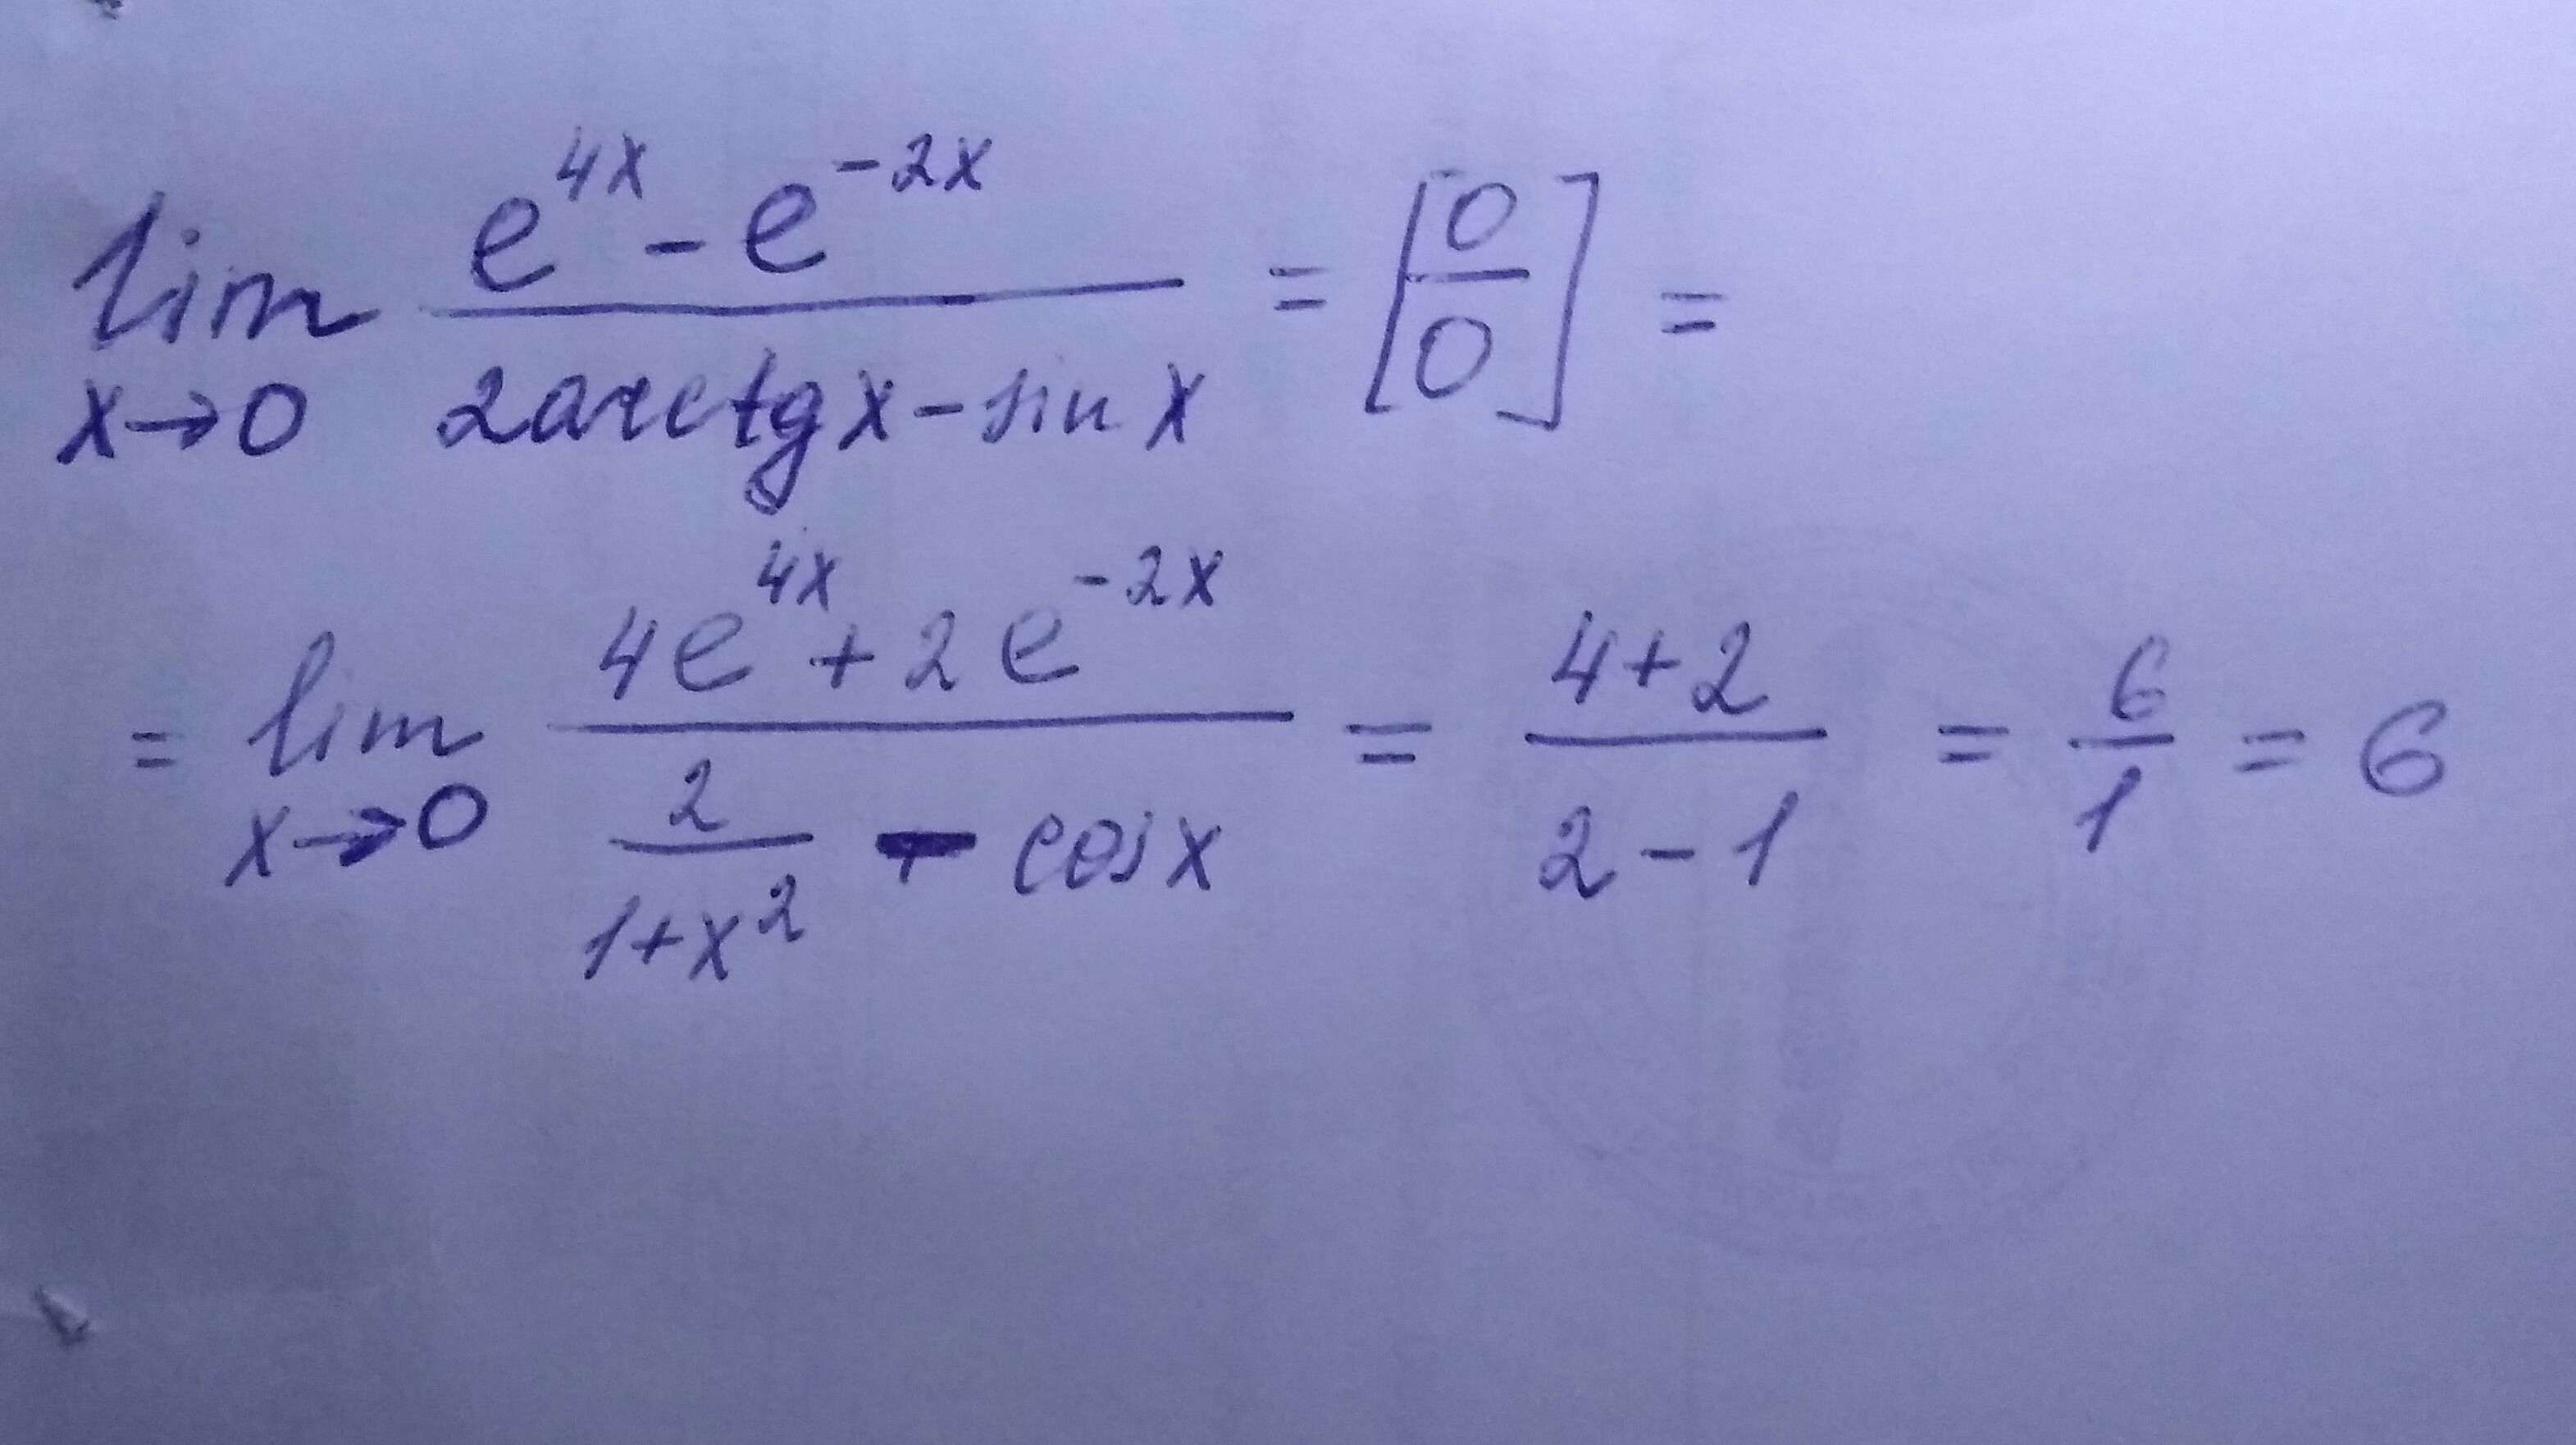 lim x→0 (e^{4x} - e^{-2x}) / (2arctg x - sin x) = [0/0] =
= lim x→0 (4e^{4x} + 2e^{-2x}) / (2/(1+x^2) - cos x) = (4+2)/(2-1) = 6/1 = 6